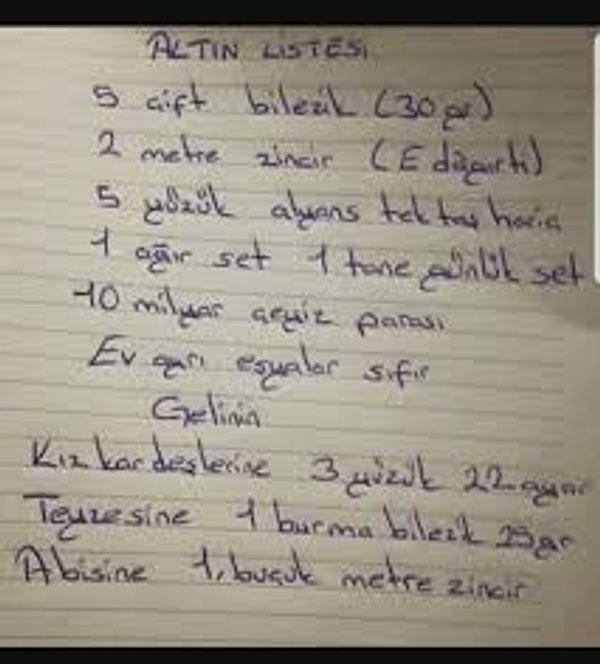 ALTIN LİSTESİ
5 çift bilezik (30 gr)
2 metre zincir (E dügartı)
5 yüzük alyans tek taş hariç
1 ağır set 1 tane günlük set
10 milyar çeyiz parası
Ev ayrı eşyalar sıfır
Gelinin
Kız kardeşlerine 3 yüzük 22 ayar
Teyzesine 1 burma bilezik 25 gr
Abisine 1, buçuk metre zincir